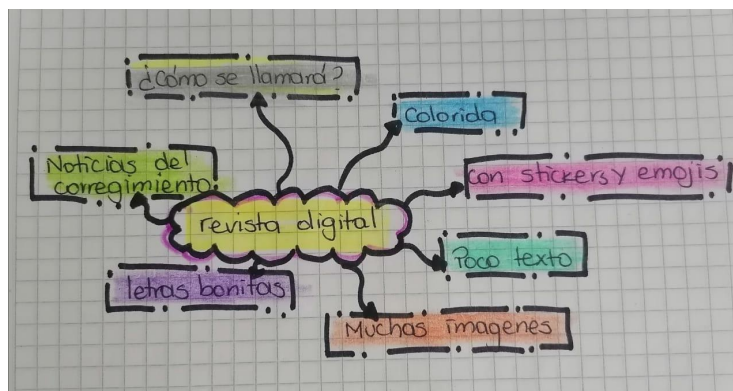 ¿Cómo se llamará?
Colorida
Noticias del
corregimiento.
con stickers y emojis
revista digital
Poco texto
letras bonitas
Muchas imagenes